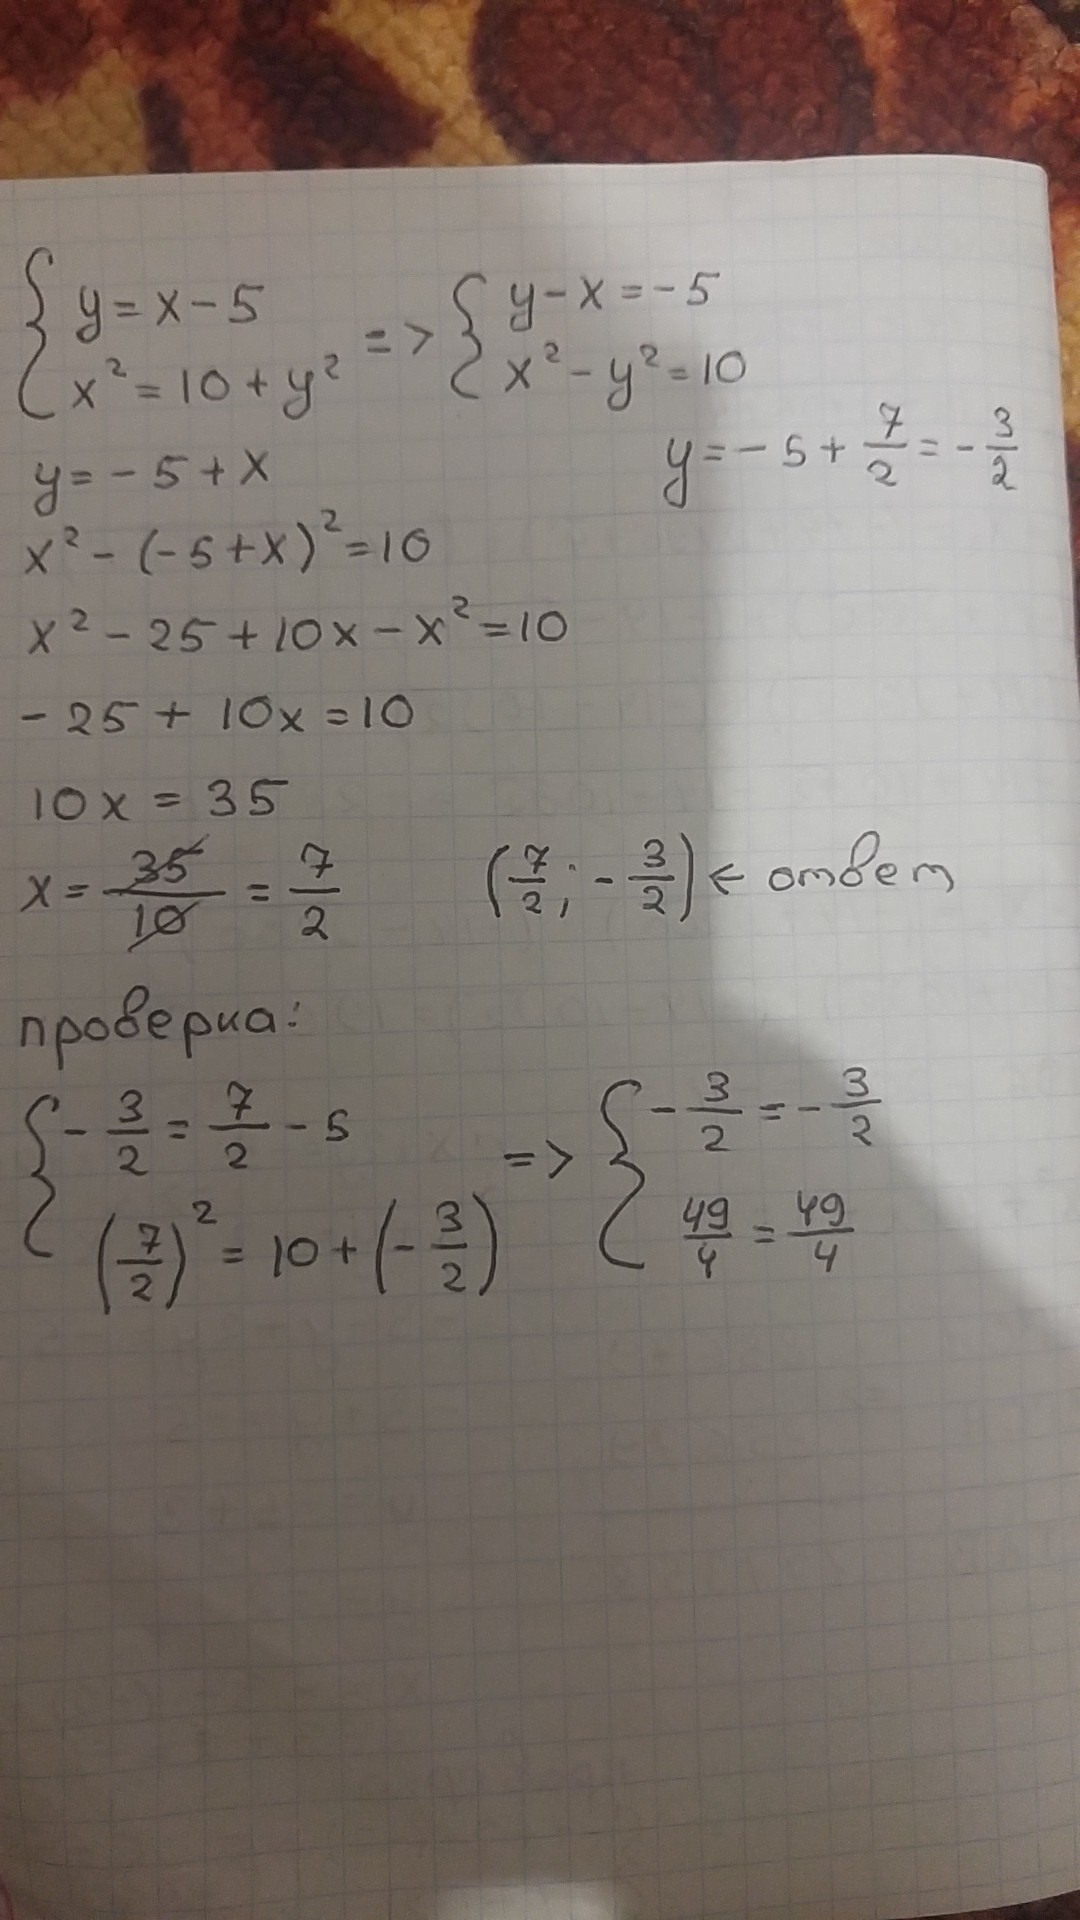 { y = x - 5
x² = 10 + y² => { y - x = -5
x² - y² = 10
y = -5 + x
y = -5 + 7/2 = -3/2
x² - (-5 + x)² = 10
x² - 25 + 10x - x² = 10
-25 + 10x = 10
10x = 35
x = 35/10 = 7/2
(7/2; -3/2) ← ответ
проверка:
{ -3/2 = 7/2 - 5
(7/2)² = 10 + (-3/2)
=> { -3/2 = -3/2
49/4 = 49/4